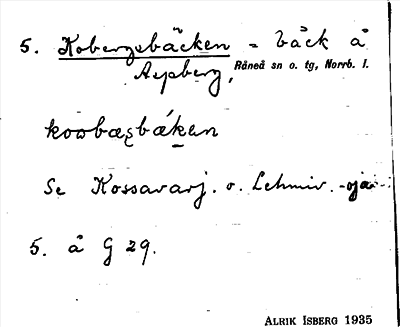 5. Kobergsbäcken = bäck å
Aspberg, Råneå sn o. tg, Norrb. l.
kowbæʂbæken
Se Kossavarj. o. Lehmiv. -oja
5. å G 29.
ALRIK ISBERG 1935